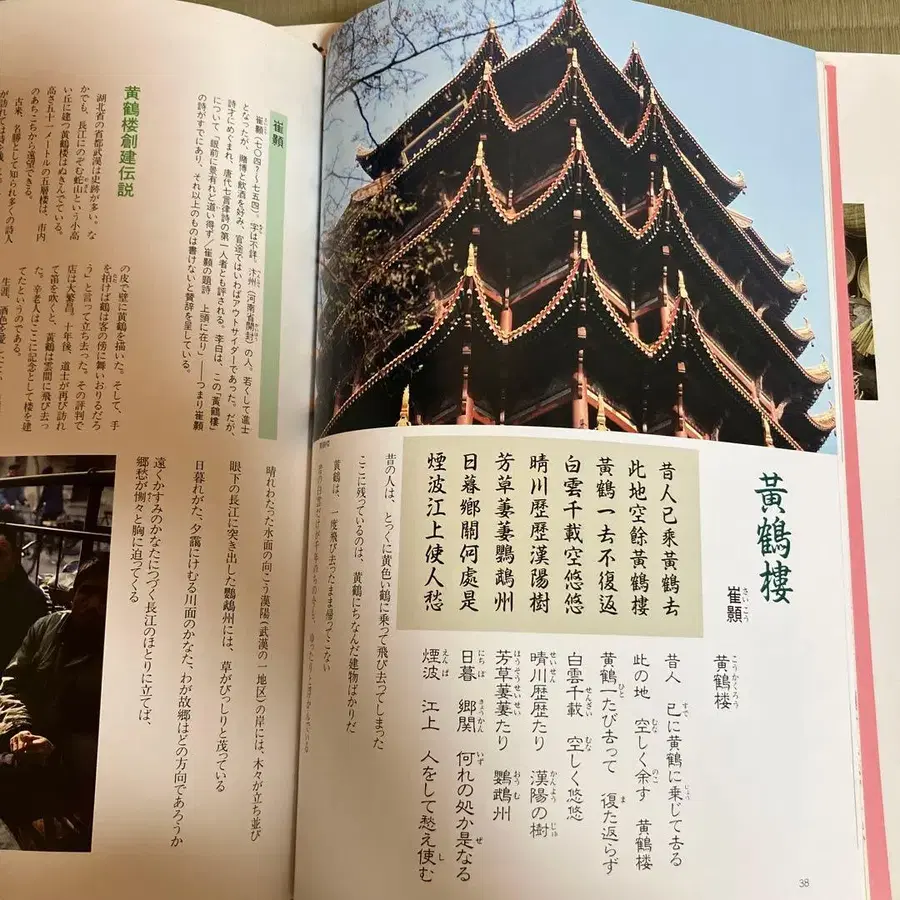 黃鶴樓
崔顥
昔人已乘黃鶴去
此地空餘黃鶴樓
黃鶴一去不復返
白雲千載空悠悠
晴川歷歷漢陽樹
芳草萋萋鸚鵡州
日暮鄉關何處是
煙波江上使人愁
黄鶴楼
昔人 已に黄鶴に乗じて去る
此の地 空しく余す 黄鶴楼
黄鶴一たび去って 復た返らず
白雲千載 空しく悠悠
晴川歴歴たり 漢陽の樹
芳草萋萋たり 鸚鵡州
日暮 郷関 何れの処か是なる
煙波 江上 人をして愁え使む
昔の人は、とっくに黄色い鶴に乗って飛び去ってしまった
ここに残っているのは、黄鶴にちなんだ建物ばかりだ
黄鶴は、一度飛び去ったまま帰ってこない
38
晴れわたった水面の向こう漢陽(武漢の一地区)の岸には、木々が立ち並び
眼下の長江に突き出した鸚鵡州には、草がびっしりと茂っている
日暮れがた、夕靄にけむる川面のかなた、わが故郷はどの方向であろうか
遠くかすみのかなたにつづく長江のほとりに立てば、
郷愁が惻々と胸に迫ってくる
崔顥
崔顥(七〇四?〜七五四)。字は不詳。汴州(河南省開封)の人。若くして進士
となったが、賭博と飲酒を好み、官途ではいわばアウトサイダーであった。だが、
詩才にめぐまれ、唐代七言律詩の第一人者とも評される。李白は、この「黄鶴楼」
について「眼前に景有れど道い得ず/崔顥の題詩 上頭に在り」——つまり崔顥
の詩がすでにあり、それ以上のものは書けないと賛辞を呈している。
黄鶴楼創建伝説
湖北省の省都武漢は史跡が多い。な
かでも、長江にのぞむ蛇山という小高
い丘に建つ黄鶴楼はぬきんでている。
高さ五十一メートルの五層楼は、市内
のあちこちから遠望できる。
古来、名勝として知られ多くの詩人
の皮で壁に黄鶴を描いた。そして、手
を拍けば鶴は客の傍に舞いおりるだろ
う」と言って立ち去った。その評判で
店は大繁昌。十年後、道士が再び訪れ
て笛を吹くと、黄鶴は雲間に飛び去っ
た。辛老人はここに記念として楼を建
てたというのである。